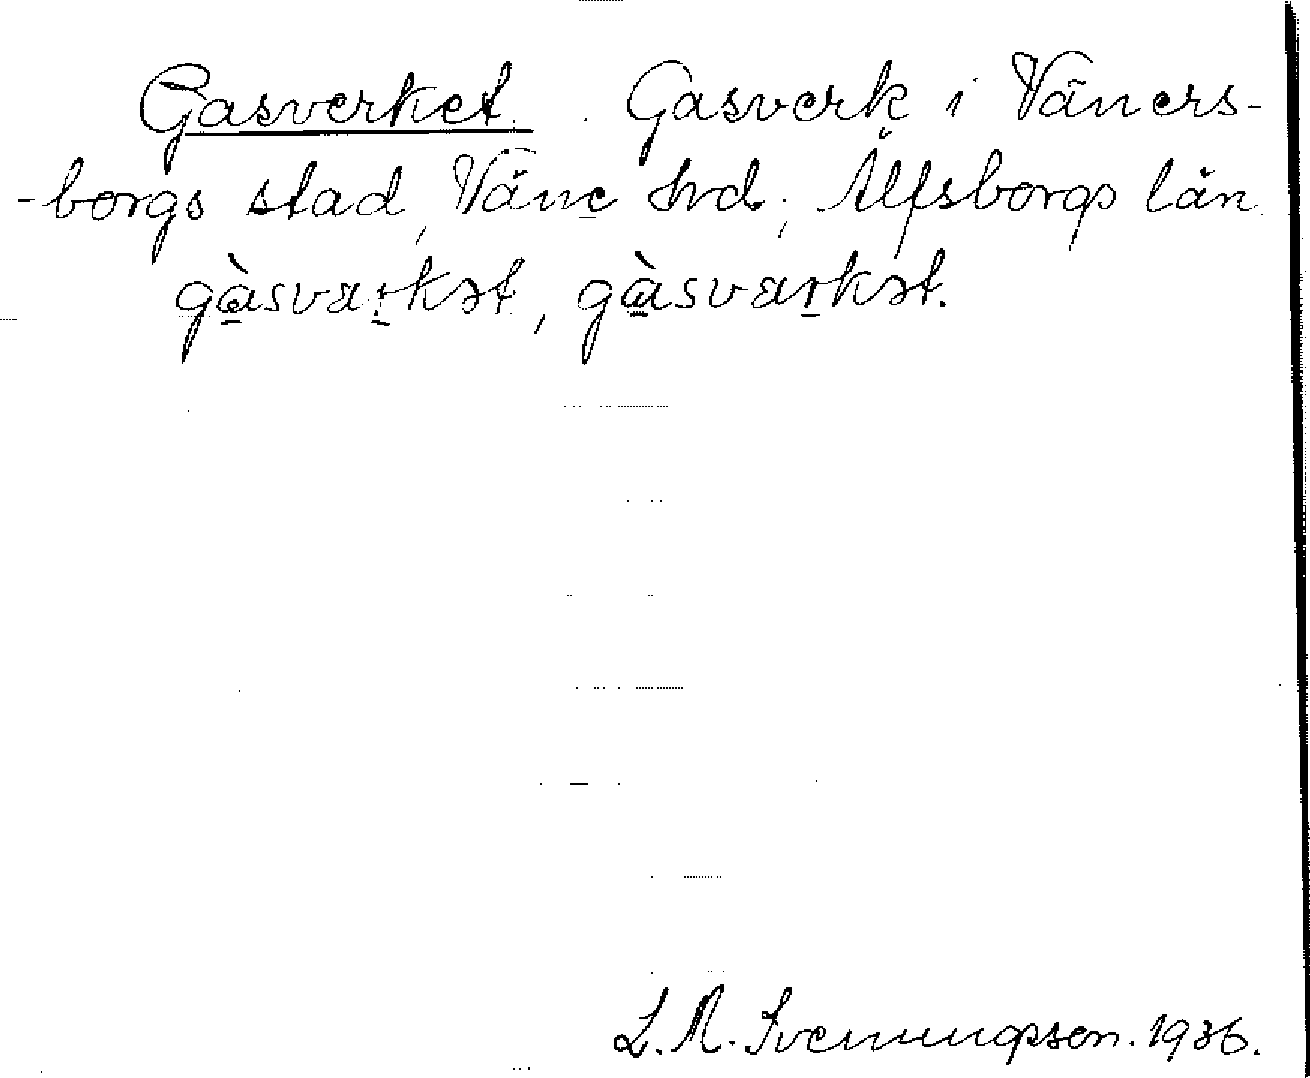 Gasverket. Gasverk i Väners-
-borgs stad, Väne hrd, Älfsborgs län.
gàsvarkət, gàsvarkət.
L. M. Svenungsson. 1936.